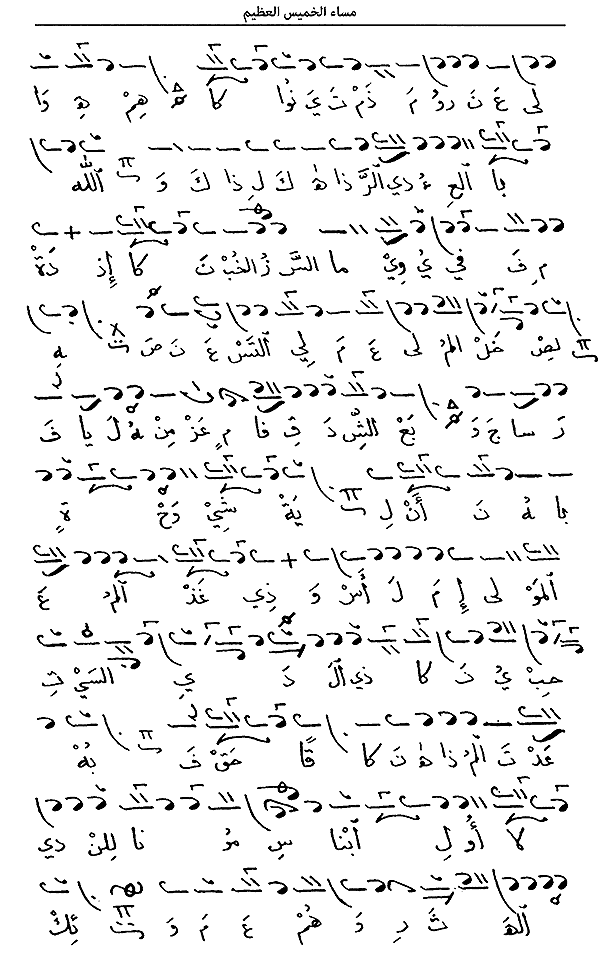 مساء الخميس العظيم
لى عَ نَ رو مُ مَ ذَمْ تَ يَ نُوا كا هِمْ هِ وا
با العِ ءِ دي الرَّ ذا هٰ كَ لِ ذا كَ وَ الله
مِ فَ في يُ وِيْ ما السَّر زُ الخُبْ نَ كا إِذ دَةْ
لِصْ خَلْ المُ لى عَ مَ لِي التَسْ عَ نَ صَ هِ
رَ سا جَ دَ بَعْ الشِّ دَ فِ قا مٍ عَزْ مِنْ هُ لَ يا فَ
با هُ نَ أَنْ لِ يَةْ شِيْ وَحْ ةٍ
المَوْ لى إِ مَ لَ أَسْ وَ ذِي غَذْ المُ عَ
حِبْ يُ نَ كا ذي الَ دَ يِ السَيْ فِ
عَدْ تَ المُ ذا هٰ نَ كا قًا حَقْ فَ بُهْ
لا أُو لِ ابْنا سِ مُ نا لِلنْ دي
الْهَ ثَ رِ وَ هُمْ عَ مَ وَ ئِكْ